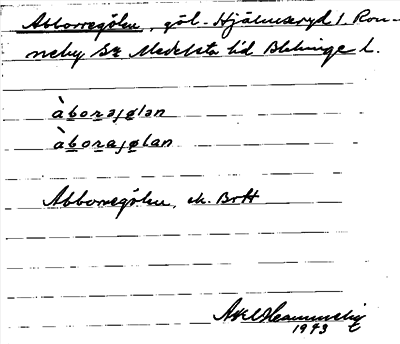 Abborregölen, göl - Hjälmseryd / Ron-
neby Sn Medelsta hd Blekinge l.
àborəjølən
àborajølan
Abborregölen, ek. Brtt
Axel
1943